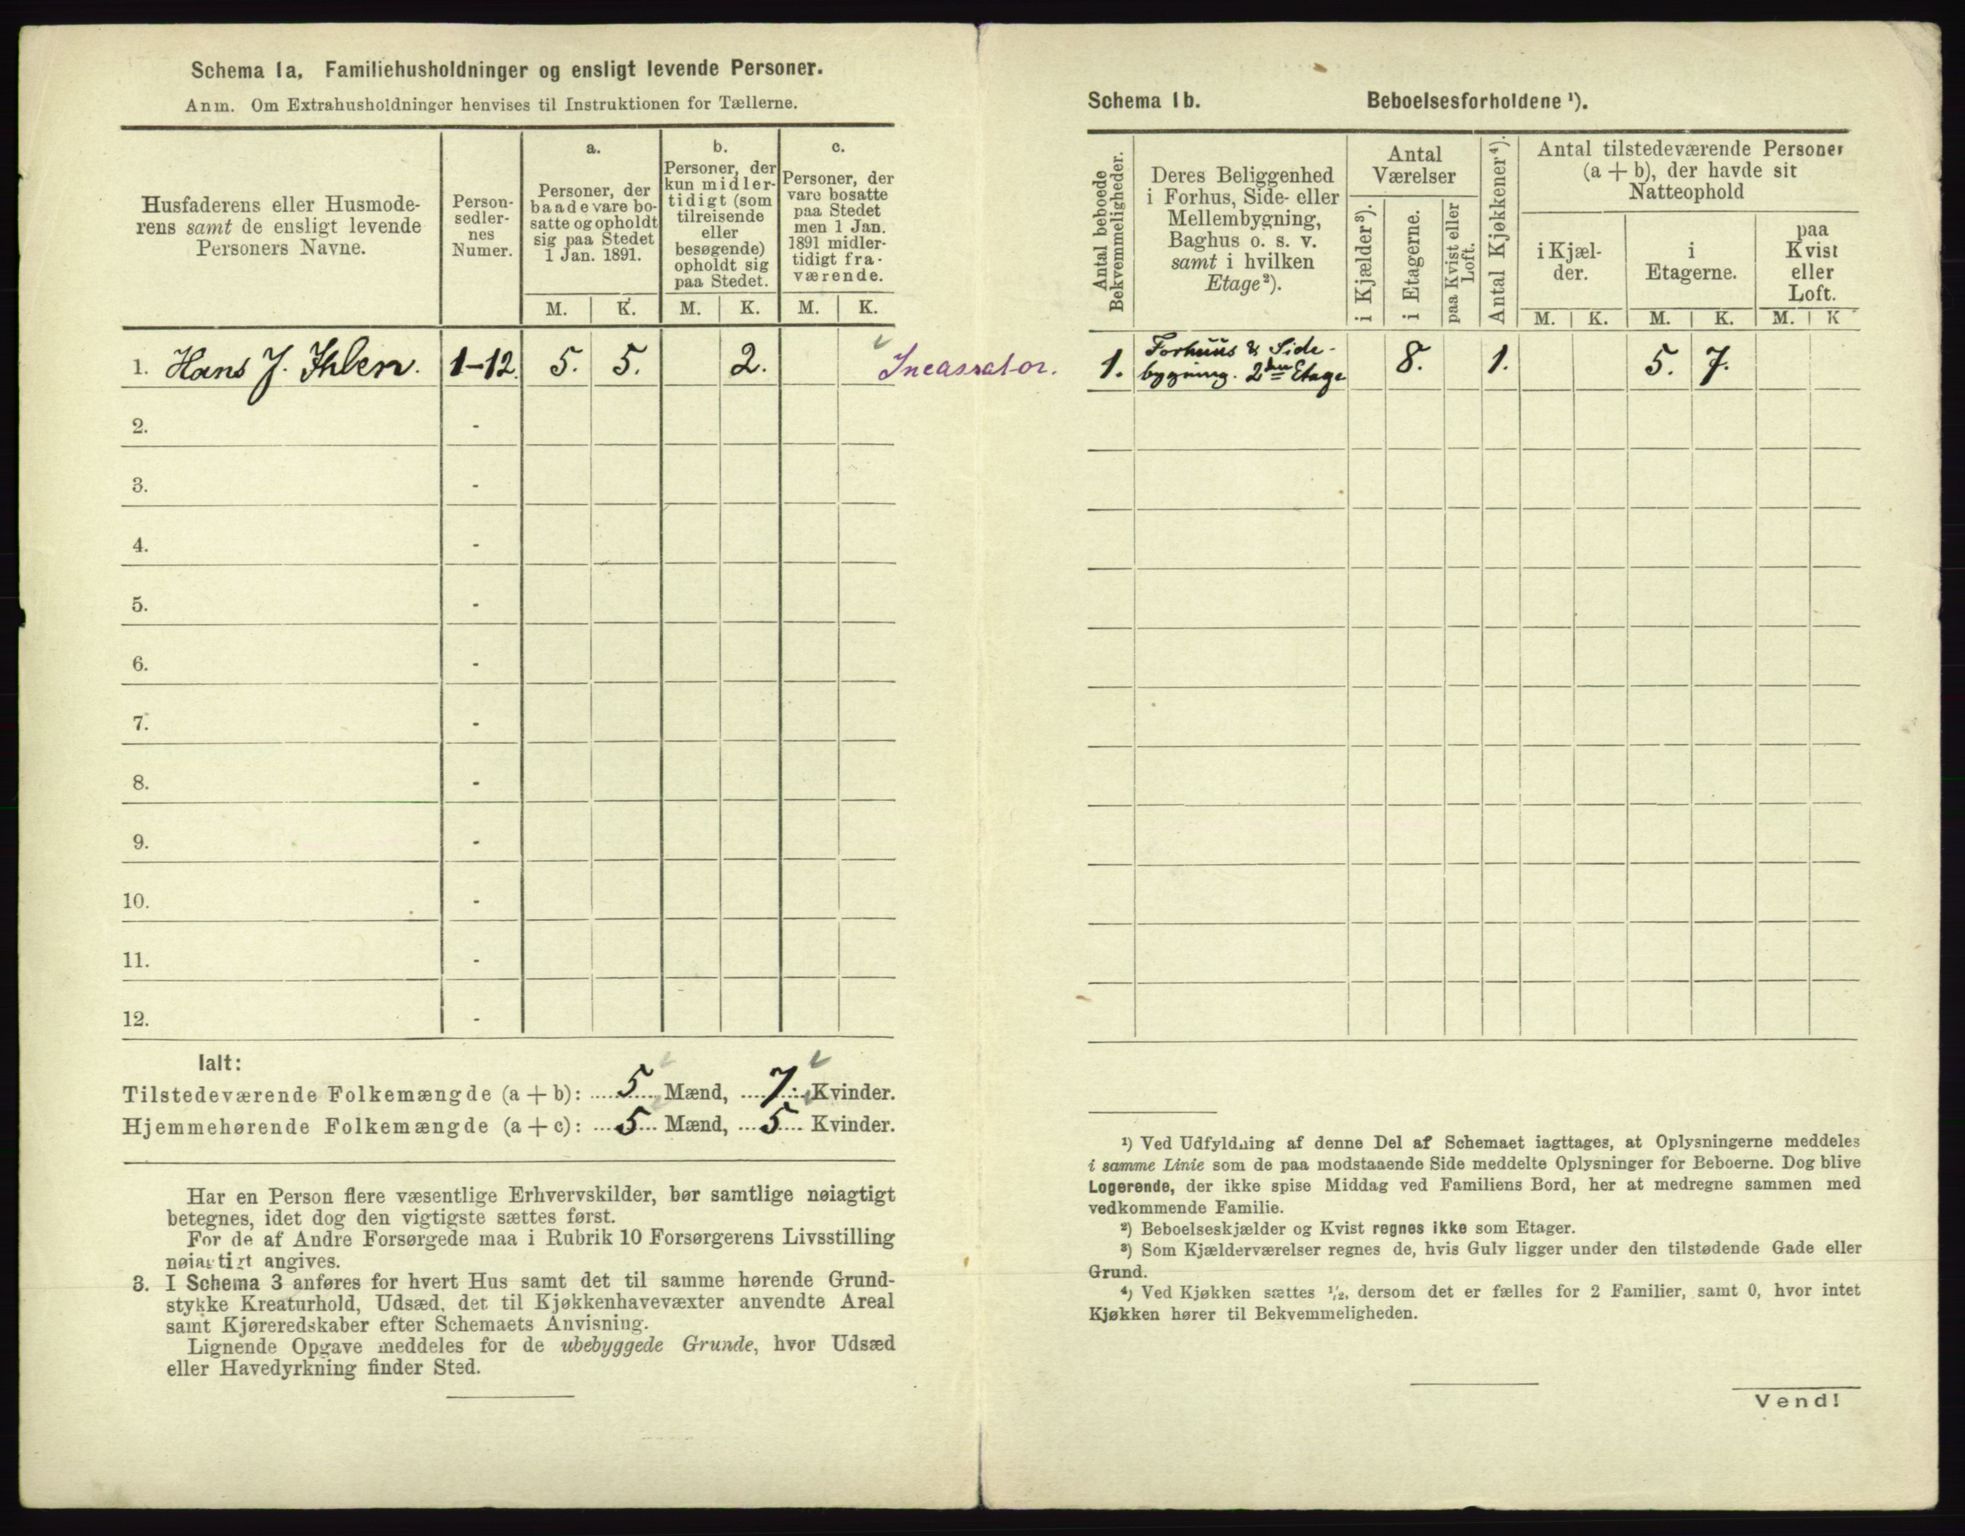 Schema 1a. Familiehusholdninger og ensligt levende Personer.
Anm. Om Extrahusholdninger henvises til Instruktionen for Tællerne.
Husfaderens eller Husmode-
rens samt de ensligt levende
Personers Navne.
Person-
sedler-
nes
Numer.
a.
Personer, der
baade vare bo-
satte og opholdt
sig paa Stedet
1 Jan. 1891.
b.
Personer, der
kun midler-
tidigt (som
tilreisende
eller
besøgende)
opholdt sig
paa Stedet.
c.
Personer, der
vare bosatte
paa Stedet
men 1 Jan.
1891 midler-
tidigt fra-
værende.
M. K. M. K. M. K.
1. Hans J. Ihlen. 1-12. 5. 5. 2. Incassator.
2. -
3. -
4. -
5. -
6. -
7. -
8. -
9. -
10. -
11. -
12. -
Ialt:
Tilstedeværende Folkemængde (a + b): 5 Mænd, 7 Kvinder.
Hjemmehørende Folkemængde (a + c): 5 Mænd, 5 Kvinder.
Har en Person flere væsentlige Erhvervskilder, bør samtlige nøiagtigt
betegnes, idet dog den vigtigste sættes først.
For de af Andre Forsørgede maa i Rubrik 10 Forsørgerens Livsstilling
nøiagtigt angives.
3. I Schema 3 anføres for hvert Hus samt det til samme hørende Grund-
stykke Kreaturhold, Udsæd, det til Kjøkkenhavevæxter anvendte Areal
samt Kjøreredskaber efter Schemaets Anvisning.
Lignende Opgave meddeles for de ubebyggede Grunde, hvor Udsæd
eller Havedyrkning finder Sted.
Schema 1b. Beboelsesforholdene ¹).
Antal beboede
Bekvemmeligheder.
Deres Beliggenhed
i Forhus, Side- eller
Mellembygning,
Baghus o. s. v.
samt i hvilken
Etage²).
Antal
Værelser
i Kjælder³).
i Etagerne.
paa Kvist eller
Loft.
Antal Kjøkkener⁴).
Antal tilstedeværende Personer
(a + b), der havde sit
Natteophold
i Kjæl-
der.
i
Etagerne.
paa
Kvist
eller
Loft.
M. K. M. K. M. K
1. Forhuus & Side-
bygning. 2den Etage 8. 1. 5. 7.
¹) Ved Udfyldning af denne Del af Schemaet iagttages, at Oplysningerne meddeles
i samme Linie som de paa modstaaende Side meddelte Oplysninger for Beboerne. Dog blive
Logerende, der ikke spise Middag ved Familiens Bord, her at medregne sammen med
vedkommende Familie.
²) Beboelseskjælder og Kvist regnes ikke som Etager.
³) Som Kjælderværelser regnes de, hvis Gulv ligger under den tilstødende Gade eller
Grund.
⁴) Ved Kjøkken sættes ½, dersom det er fælles for 2 Familier, samt 0, hvor intet
Kjøkken hører til Bekvemmeligheden.
Vend!